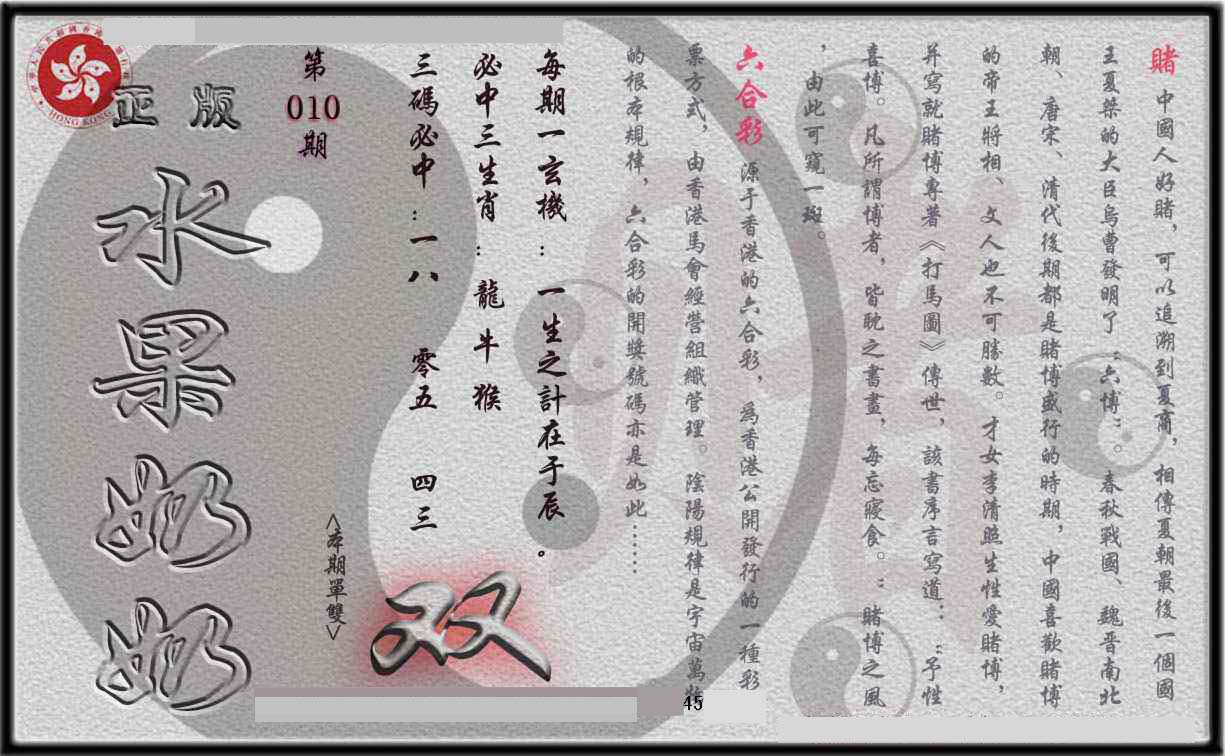 賭 中國人好賭，可以追溯到夏商，相傳夏朝最後一個國
王夏桀的大臣烏曹發明了“六博”。春秋戰國、魏晋南北
朝、唐宋、清代後期都是賭博盛行的時期，中國喜歡賭博
的帝王將相、文人也不可勝數。才女李清照生性愛賭博，
并寫就賭博專著《打馬圖》傳世，該書序言寫道：“予性
喜博。凡所謂博者，皆耽之書畫，每忘寢食。”賭博之風
，由此可窺一斑。
六合彩 源于香港的六合彩，爲香港公開發行的一種彩
票方式，由香港馬會經營組織管理。陰陽規律是宇宙萬物
的根本規律，六合彩的開獎號碼亦是如此……
每期一玄機：一生之計在于辰。
必中三生肖：龍 牛 猴
三碼必中：一八 零五 四三
<本期單雙>
双
第
010
期
正版
水果奶奶
HONG KONG
45